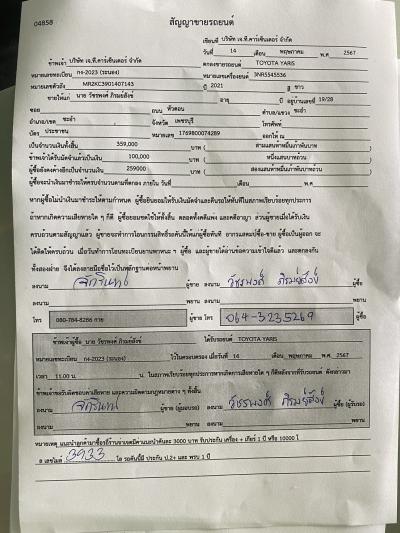 04858
สัญญาขายรถยนต์
เขียนที่ บริษัท เจ.ที.คาร์เซ็นเตอร์ จำกัด
วันที่ 14 เดือน พฤษภาคม พ.ศ 2567
ข้าพเจ้า บริษัท เจ.ที.คาร์เซ็นเตอร์ จำกัด ตกลงขายรถยนต์ TOYOTA YARIS
หมายเลขทะเบียน กง-2023 (ระนอง) หมายเลขเครื่องยนต์ 3NR5545536
หมายเลขตัวถัง MR2KC3901407143 ปี 2021 สี ขาว
ขายให้แก่ นาย วัชรพงศ์ ภิรมย์สังข์ อายุ ปี อยู่บ้านเลขที่ 19/28
ซอย ถนน หัวดอน ตำบล/แขวง ชะอำ
อำเภอ/เขต ชะอำ จังหวัด เพชรบุรี โทรศัพท์
บัตร ประชาชน หมายเลข 1769800074289 ออกให้ ณ
เป็นจำนวนเงินทั้งสิ้น 359,000 บาท ( สามแสนห้าหมื่นเก้าพันบาท )
ข้าพเจ้าได้รับมัดจำแล้วเป็นเงิน 100,000 บาท ( หนึ่งแสนบาทถ้วน )
ผู้ซื้อยังคงค้างอีกเป็นจำนวนเงิน 259000 บาท ( สองแสนห้าหมื่นเก้าพันบาทถ้วน )
ผู้ซื้อจะนำเงินมาชำระให้ครบจำนวนตามที่ตกลง ภายใน วันที่ เดือน พ.ศ
หากผู้ซื้อไม่นำเงินมาชำระให้ตามกำหนด ผู้ซื้อยินยอมให้ริบเงินมัดจำและคืนรถให้ทันทีในสภาพเรียบร้อยทุกประการ
ถ้าหากเกิดความเสียหายใด ๆ ก็ดี ผู้ซื้อยอมชดใช้ให้ทั้งสิ้น ตลอดทั้งคดีแพ่ง และคดีอาญา ส่วนผู้ขายเมื่อได้รับเงิน
ครบถ้วนตามสัญญาแล้ว ผู้ขายจะทำการโอนกรรมสิทธิ์รถคันนี้ให้แก่ผู้ซื้อทันที อากรแสตมป์ซื้อ-ขาย ผู้ซื้อเป็นผู้ออก จะ
ได้คิดให้ครบถ้วน เมื่อวันทำการโอนทะเบียนยานพาหนะ ฯ ผู้ซื้อ และผู้ขายได้อ่านข้อความเข้าใจดีแล้ว และตกลงกัน
ทั้งสองฝ่าย จึงได้ลงลายมือชื่อไว้เป็นหลักฐานต่อหน้าพยาน
ลงนาม จักรินทร์ ผู้ขาย ลงนาม วัชรพงศ์ ภิรมย์สังข์ ผู้ซื้อ
ลงนาม พยาน ลงนาม พยาน
โทร 080-784-8286 กาย ผู้ขาย โทร 064-3235269 ผู้ซื้อ
ข้าพเจ้าผู้ซื้อ นาย วัชรพงศ์ ภิรมย์สังข์ ได้รับรถยนต์ TOYOTA YARIS
หมายเลขทะเบียน กง-2023 (ระนอง) ไว้ในครอบครอง เมื่อวันที่ 14 เดือน พฤษภาคม พ.ศ. 2567
เวลา 11.00 น. ในสภาพเรียบร้อยทุกประการหากเกิดการเสียหายใด ๆ ก็ดีหลังจากที่รับรถยนต์ ดังกล่าวมา
ข้าพเจ้าขอรับผิดชอบค่าเสียหาย และความผิดตามกฎหมายต่าง ๆ ทั้งสิ้น
ลงนาม จักรินทร์ ผู้ขาย (ผู้มอบรถ) ลงนาม วัชรพงศ์ ภิรมย์สังข์ ผู้ซื้อ (ผู้รับรถ)
ลงนาม พยาน ลงนาม พยาน
หมายเหตุ แนะนำลูกค้ามาซื้อรถที่ร้านจ่ายค่าแนะนำคันละ 3000 บาท รับประกัน เครื่อง + เกียร์ 1 ปี หรือ 10000 โ
ล เลขไมล์ 3933 โล รถคันนี้มี ประกัน ป.2+ และ พรบ 1 ปี